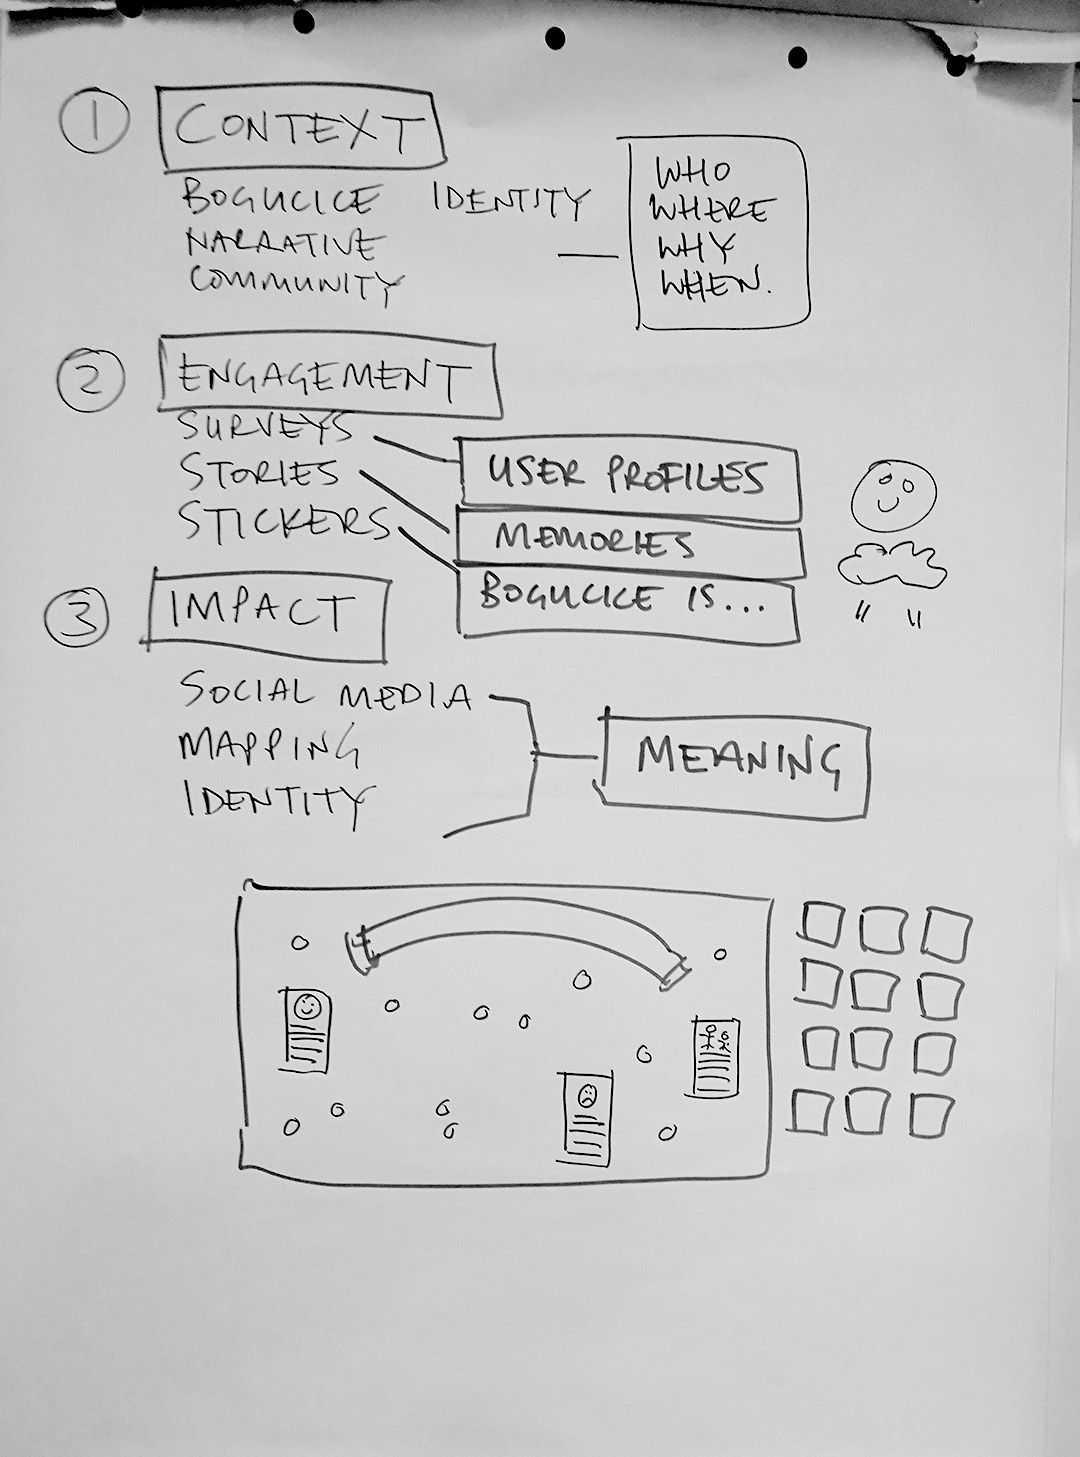 1 CONTEXT
BOGUCICE IDENTITY
NARRATIVE
COMMUNITY
WHO
WHERE
WHY
WHEN.
2 ENGAGEMENT
SURVEYS
STORIES
STICKERS
USER PROFILES
MEMORIES
BOGUCICE IS...
3 IMPACT
SOCIAL MEDIA
MAPPING
IDENTITY
MEANING